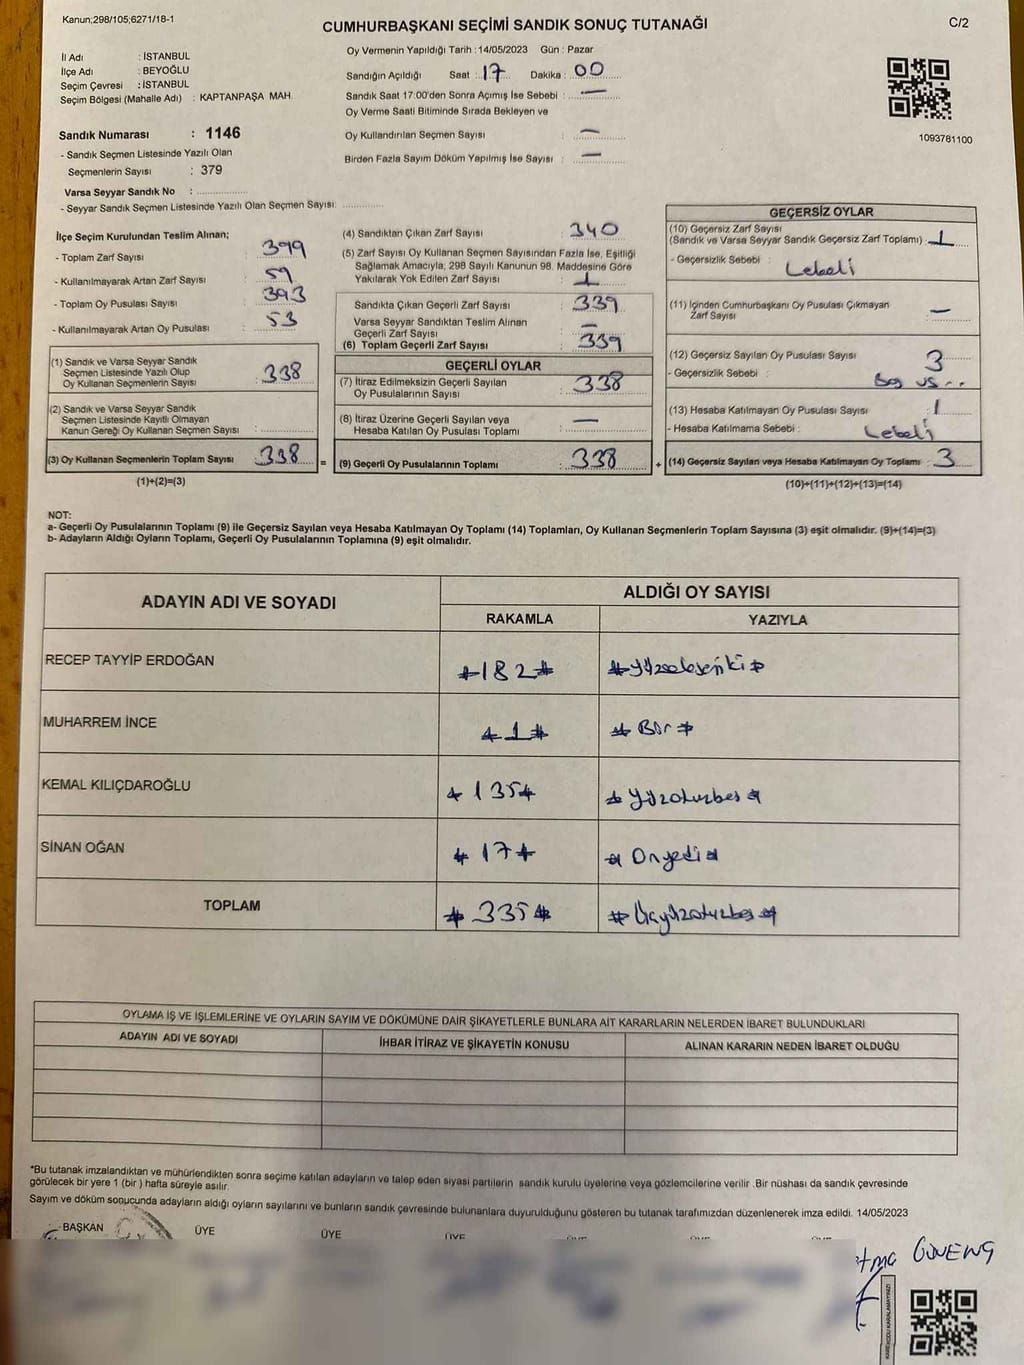 Kanun;298/105;6271/18-1
CUMHURBAŞKANI SEÇİMİ SANDIK SONUÇ TUTANAĞI
C/2
İl Adı : İSTANBUL
İlçe Adı : BEYOĞLU
Seçim Çevresi : İSTANBUL
Seçim Bölgesi (Mahalle Adı) : KAPTANPAŞA MAH.
Sandık Numarası : 1146
- Sandık Seçmen Listesinde Yazılı Olan
Seçmenlerin Sayısı : 379
Varsa Seyyar Sandık No :
- Seyyar Sandık Seçmen Listesinde Yazılı Olan Seçmen Sayısı:
Oy Vermenin Yapıldığı Tarih :14/05/2023 Gün : Pazar
Sandığın Açıldığı Saat : 17 Dakika : 00
Sandık Saat 17:00'den Sonra Açımış İse Sebebi : —
Oy Verme Saati Bitiminde Sırada Bekleyen ve
Oy Kullandırılan Seçmen Sayısı : —
Birden Fazla Sayım Döküm Yapılmış İse Sayısı : —
1093781100
İlçe Seçim Kurulundan Teslim Alınan;
- Toplam Zarf Sayısı : 399
- Kullanılmayarak Artan Zarf Sayısı : 59
- Toplam Oy Pusulası Sayısı : 393
- Kullanılmayarak Artan Oy Pusulası : 53
(1) Sandık ve Varsa Seyyar Sandık
Seçmen Listesinde Yazılı Olup
Oy Kullanan Seçmenlerin Sayısı : 338
(2) Sandık ve Varsa Seyyar Sandık
Seçmen Listesinde Kayıtlı Olmayan
Kanun Gereği Oy Kullanan Seçmen Sayısı :
(3) Oy Kullanan Seçmenlerin Toplam Sayısı : 338 =
(1)+(2)=(3)
(4) Sandıktan Çıkan Zarf Sayısı : 340
(5) Zarf Sayısı Oy Kullanan Seçmen Sayısından Fazla İse, Eşitliği
Sağlamak Amacıyla; 298 Sayılı Kanunun 98. Maddesine Göre
Yakılarak Yok Edilen Zarf Sayısı : 1
Sandıkta Çıkan Geçerli Zarf Sayısı : 339
Varsa Seyyar Sandıktan Teslim Alınan
Geçerli Zarf Sayısı : —
(6) Toplam Geçerli Zarf Sayısı : 339
GEÇERLİ OYLAR
(7) İtiraz Edilmeksizin Geçerli Sayılan
Oy Pusulalarının Sayısı : 338
(8) İtiraz Üzerine Geçerli Sayılan veya
Hesaba Katılan Oy Pusulası Toplamı : —
(9) Geçerli Oy Pusulalarının Toplamı : 338 +
GEÇERSİZ OYLAR
(10) Geçersiz Zarf Sayısı
(Sandık ve Varsa Seyyar Sandık Geçersiz Zarf Toplamı) : 1
- Geçersizlik Sebebi : Lebeli
(11) İçinden Cumhurbaşkanı Oy Pusulası Çıkmayan
Zarf Sayısı : —
(12) Geçersiz Sayılan Oy Pusulası Sayısı : 3
- Geçersizlik Sebebi : Boş vs..
(13) Hesaba Katılmayan Oy Pusulası Sayısı : 1
- Hesaba Katılmama Sebebi : Lebeli
(14) Geçersiz Sayılan veya Hesaba Katılmayan Oy Toplamı : 3
(10)+(11)+(12)+(13)=(14)
NOT:
a- Geçerli Oy Pusulalarının Toplamı (9) ile Geçersiz Sayılan veya Hesaba Katılmayan Oy Toplamı (14) Toplamları, Oy Kullanan Seçmenlerin Toplam Sayısına (3) eşit olmalıdır. (9)+(14)=(3)
b- Adayların Aldığı Oyların Toplamı, Geçerli Oy Pusulalarının Toplamına (9) eşit olmalıdır.
ADAYIN ADI VE SOYADI
ALDIĞI OY SAYISI
RAKAMLA YAZIYLA
RECEP TAYYİP ERDOĞAN #182# #Yüzsekseniki#
MUHARREM İNCE #1# #Bir#
KEMAL KILIÇDAROĞLU #135# #Yüzotuzbeş#
SİNAN OĞAN #17# #Onyedi#
TOPLAM #335# #Üçyüzotuzbeş#
OYLAMA İŞ VE İŞLEMLERİNE VE OYLARIN SAYIM VE DÖKÜMÜNE DAİR ŞİKAYETLERLE BUNLARA AİT KARARLARIN NELERDEN İBARET BULUNDUKLARI
ADAYIN ADI VE SOYADI İHBAR İTİRAZ VE ŞİKAYETİN KONUSU ALINAN KARARIN NEDEN İBARET OLDUĞU
*Bu tutanak imzalandıktan ve mühürlendikten sonra seçime katılan adayların ve talep eden siyasi partilerin sandık kurulu üyelerine veya gözlemcilerine verilir .Bir nüshası da sandık çevresinde
görülecek bir yere 1 (bir ) hafta süreyle asılır.
Sayım ve döküm sonucunda adayların aldığı oyların sayılarını ve bunların sandık çevresinde bulunanlara duyurulduğunu gösteren bu tutanak tarafımızdan düzenlenerek imza edildi. 14/05/2023
BAŞKAN ÜYE ÜYE ÜYE